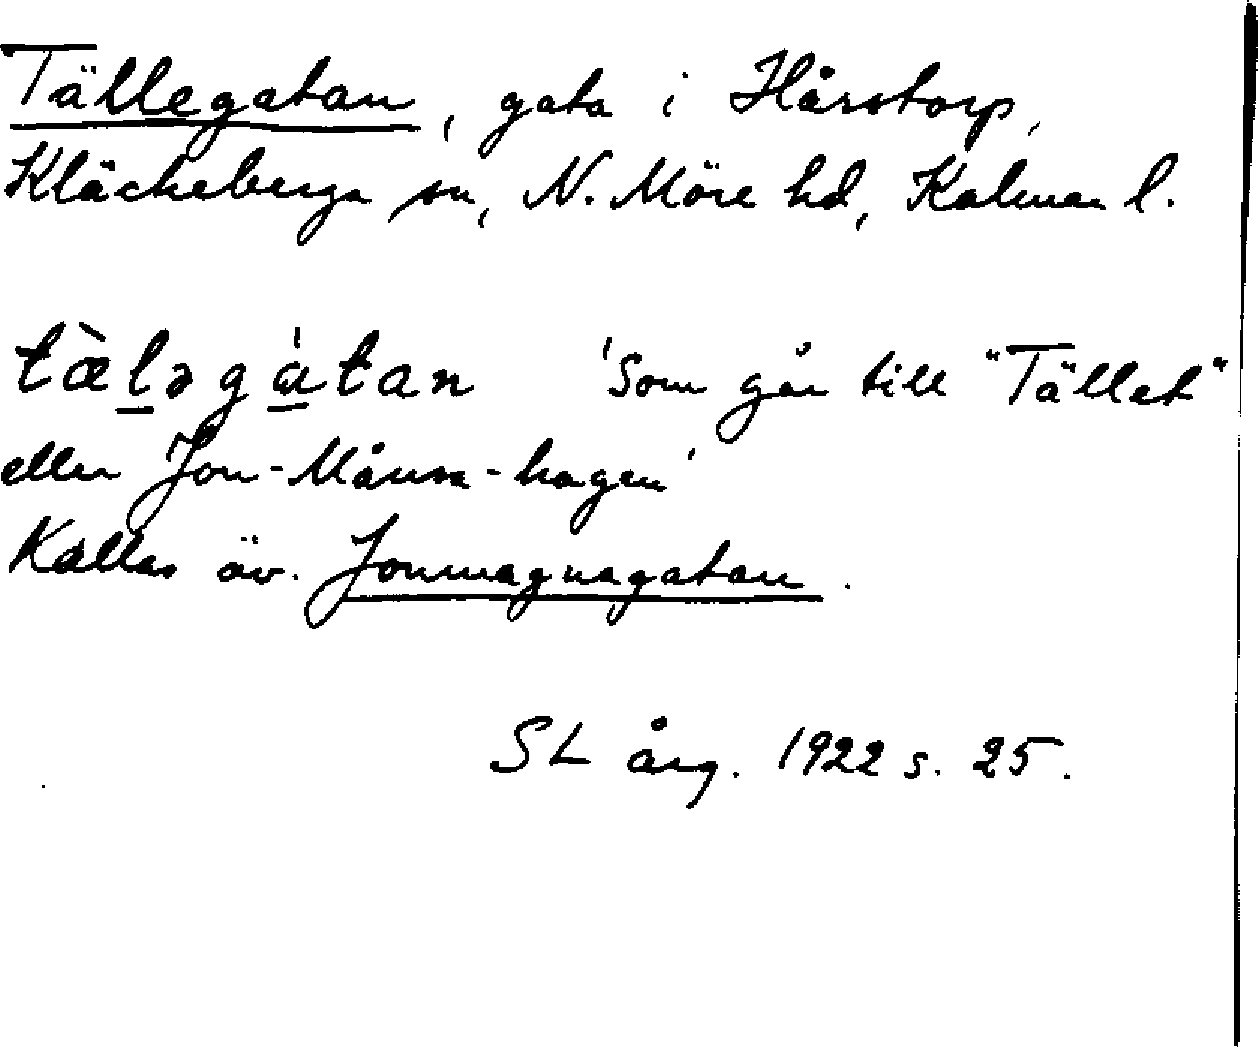 Tällegatan, gata i Hårstorp,
Kläckeberga sn, N. Möre hd, Kalmar l.
tæ̀l̠əgà̠tan 'Som går till "Tället"
eller Jon-Månsa-hagen'
Kallas äv. Jonmagnagatan.
SL årg. 1922 s. 25.